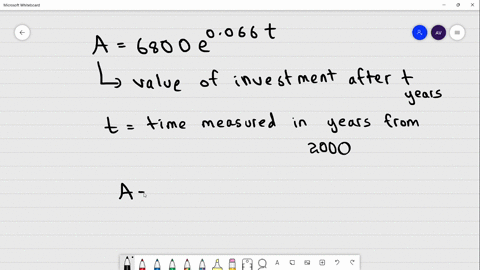 Microsoft Whiteboard
AV
A = 6800 e^0.066 t
↳ value of investment after t
years
t = time measured in years from
2000
A -